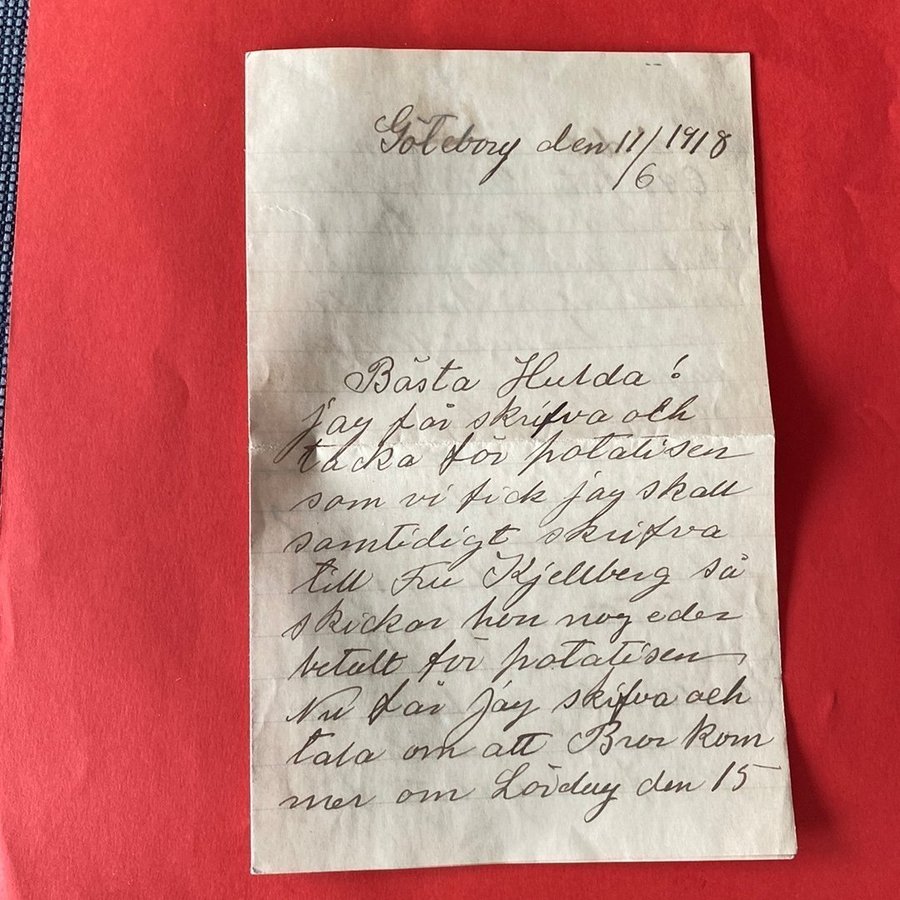 Göteborg den 11/6 1918
Bästa Hulda!
jag får skrifva och
tacka för potatisen
som vi fick jag skall
samtidigt skrifva
till Fru Kjellberg så
skickar hon nog eder
betalt för potatisen
Nu får jag skifva och
tala om att Bror kom
mer om Lördag den 15